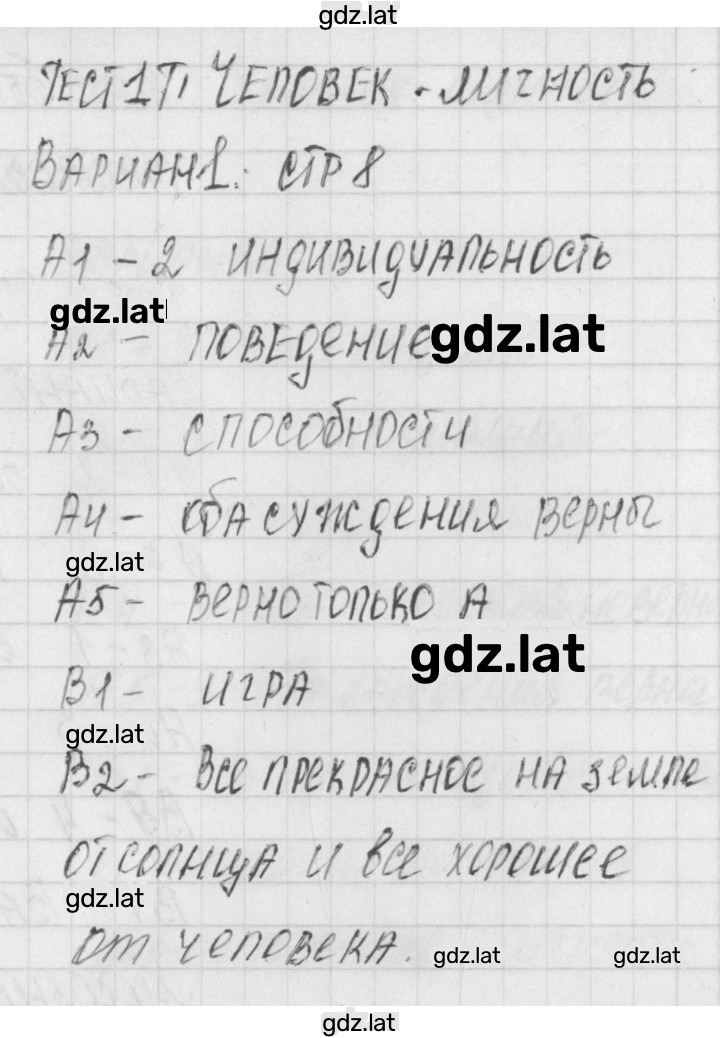 gdz.lat
ТЕСТ 1 Т1 ЧЕЛОВЕК - ЛИЧНОСТЬ
ВАРИАН1: СТР 8
А1 - 2 ИНДИВИДУАЛЬНОСТЬ
gdz.lat
А2 - ПОВЕДЕНИЕ gdz.lat
А3 - СПОСОБНОСТИ
А4 - ОБА СУЖДЕНИЯ ВЕРНЫ
gdz.lat
А5 - ВЕРНО ТОЛЬКО А
gdz.lat
В1 - ИГРА
gdz.lat
В2 - ВСЕ ПРЕКРАСНОЕ НА ЗЕМЛЕ
ОТ СОЛНЦА И ВСЕ ХОРОШЕЕ
gdz.lat
ОТ ЧЕЛОВЕКА.
gdz.lat gdz.lat
gdz.lat